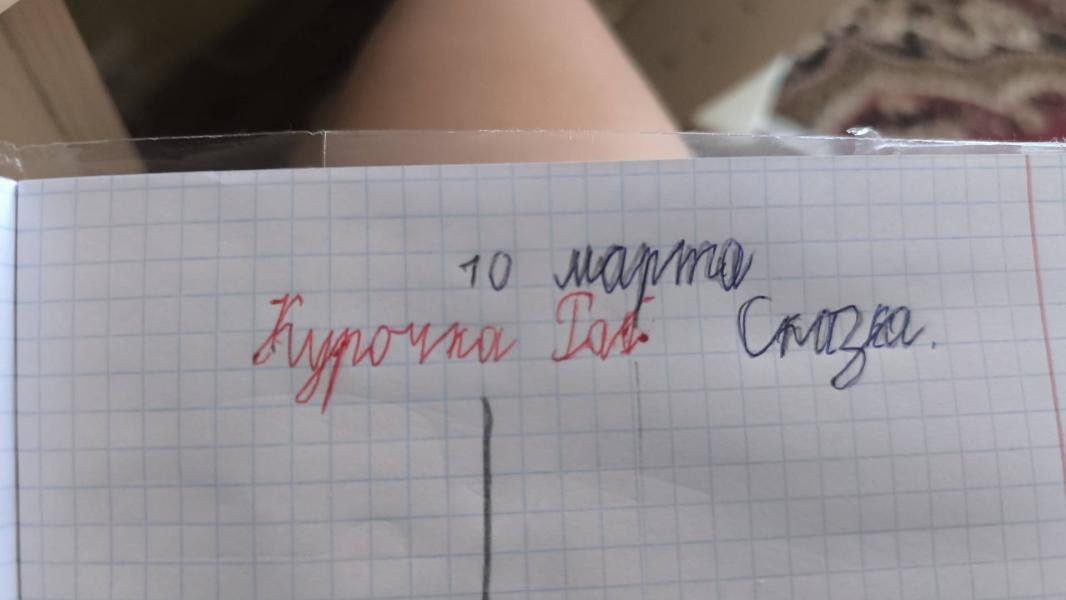 10 марта
Курочка Сказка.